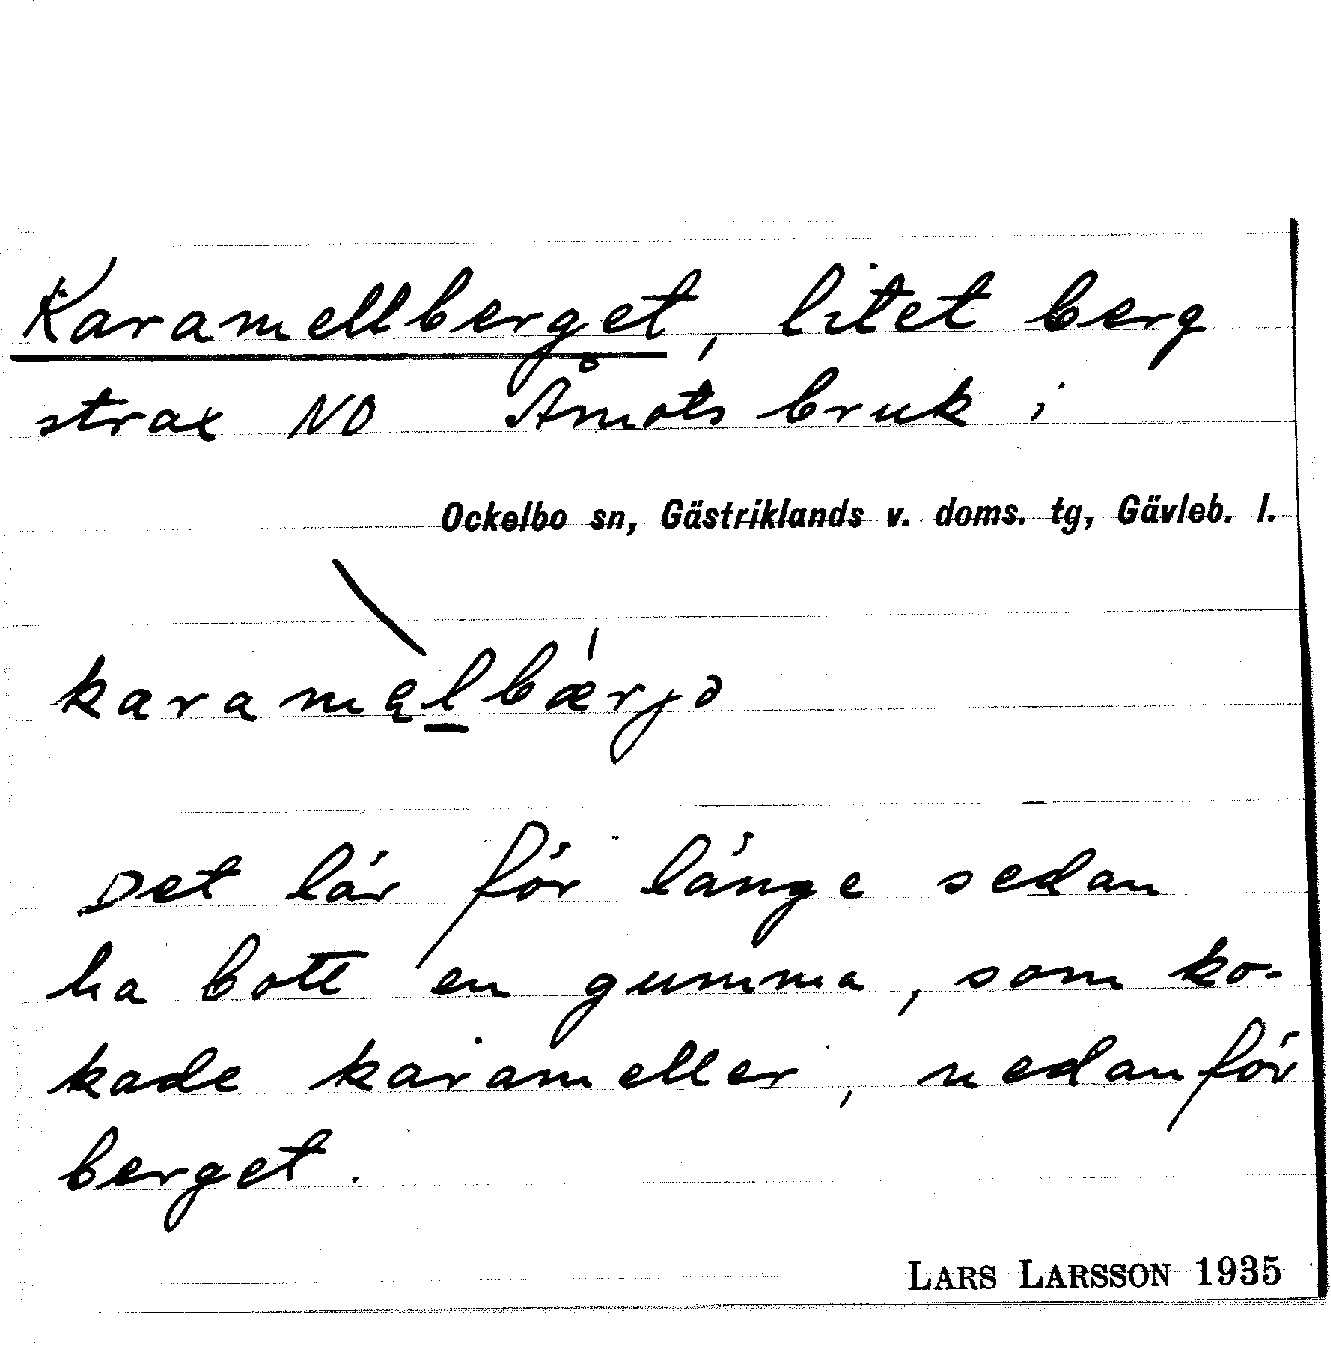 Karamellberget, litet berg
strax NO Åmots bruk i
Ockelbo sn, Gästriklands v. doms. tg, Gävleb. l.
karamęlbærjə
Det lär för länge sedan
ha bott en gumma, som ko-
kade karameller, nedanför
berget.
LARS LARSSON 1935